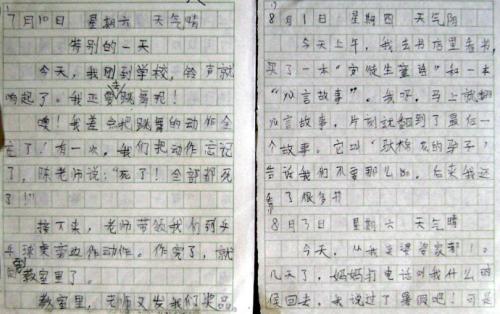 7月10日 星期六 天气晴
特别的一天
今天,我刚到学校,铃声就
响起了。我正要去跳舞呢!
噢!我差点把跳舞的动作全
忘了!有一次,我们把动作忘记
了,陈老师说:"死了!全部都死
了!!"
接下来,老师带领我们到乒
乓球室边作动作。作完了,就
回教室里了。
教室里,老师又发我们奖品
8月1日 星期四 天气阴
今天上午,我去书店里看书,
买了一本" 生童话"和一本
" 言故事"。我呀,马上就翻
言故事,片刻就翻到了最后一
个故事。它叫" 的驴子"
告诉我们不要那么 ,后来我还
看了很多书
8月3日 星期六 天气晴
今天,从我 婆婆家 !
几天了,妈妈打电话叫我什么时
候回去,我说过了暑假吧!可是